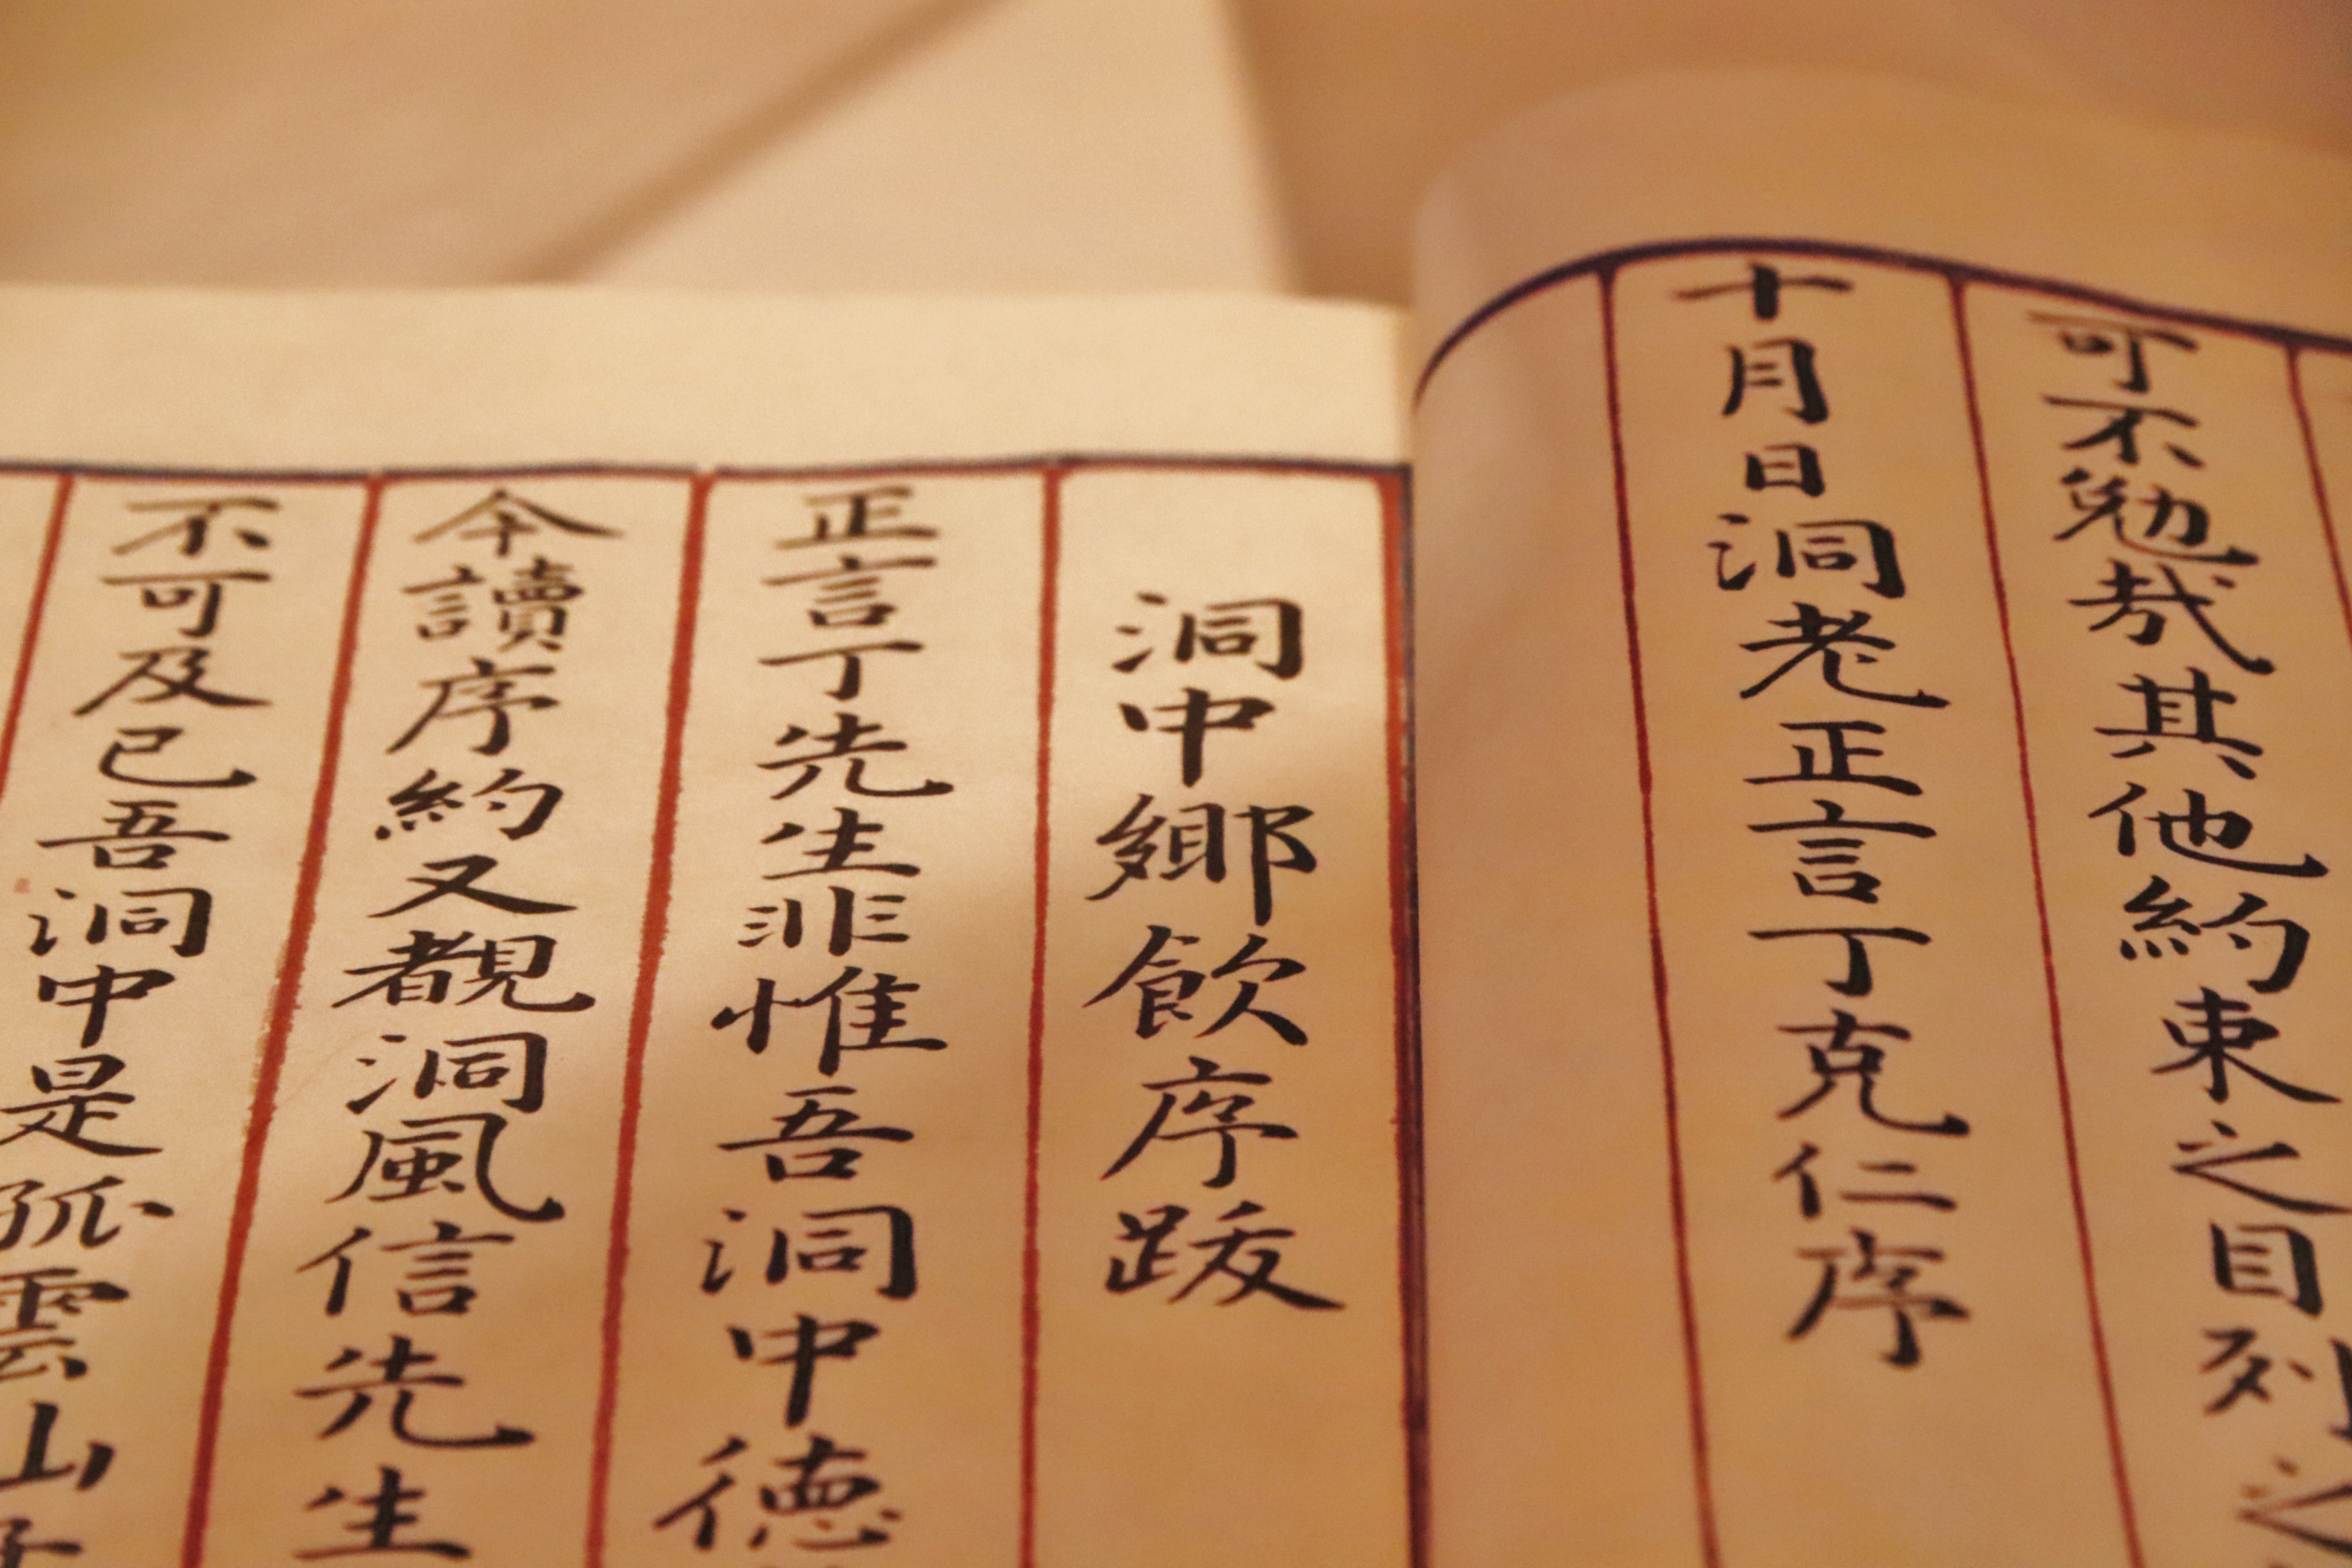 可不勉哉其他約束之目列之
十月日洞老正言丁克仁序
洞中鄉飮序跋
正言丁先生非惟吾洞中德
今讀序約又覩洞風信先生
不可及已吾洞中是孤雲山